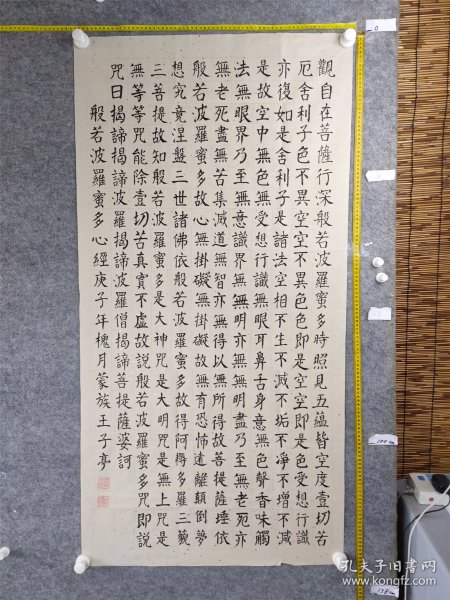 觀自在菩薩行深般若波羅蜜多時照見五蘊皆空度壹切苦
厄舍利子色不異空空不異色色即是空空即是色受想行識
亦復如是舍利子是諸法空相不生不滅不垢不凈不增不減
是故空中無色無受想行識無眼耳鼻舌身意無色聲香味觸
法無眼界乃至無意識界無無明亦無無明盡乃至無老死亦
無老死盡無苦集滅道無智亦無得以無所得故菩提薩埵依
般若波羅蜜多故心無掛礙無掛礙故無有恐怖遠離顛倒夢
想究竟涅盤三世諸佛依般若波羅蜜多故得阿耨多羅三藐
三菩提故知般若波羅蜜多是大神咒是大明咒是無上咒是
無等等咒能除壹切苦真實不虛故説般若波羅蜜多咒即説
咒曰揭諦揭諦波羅揭諦波羅僧揭諦菩提薩婆訶
般若波羅蜜多心經庚子年槐月蒙族王子亭
孔夫子旧书网
www.kongfz.com